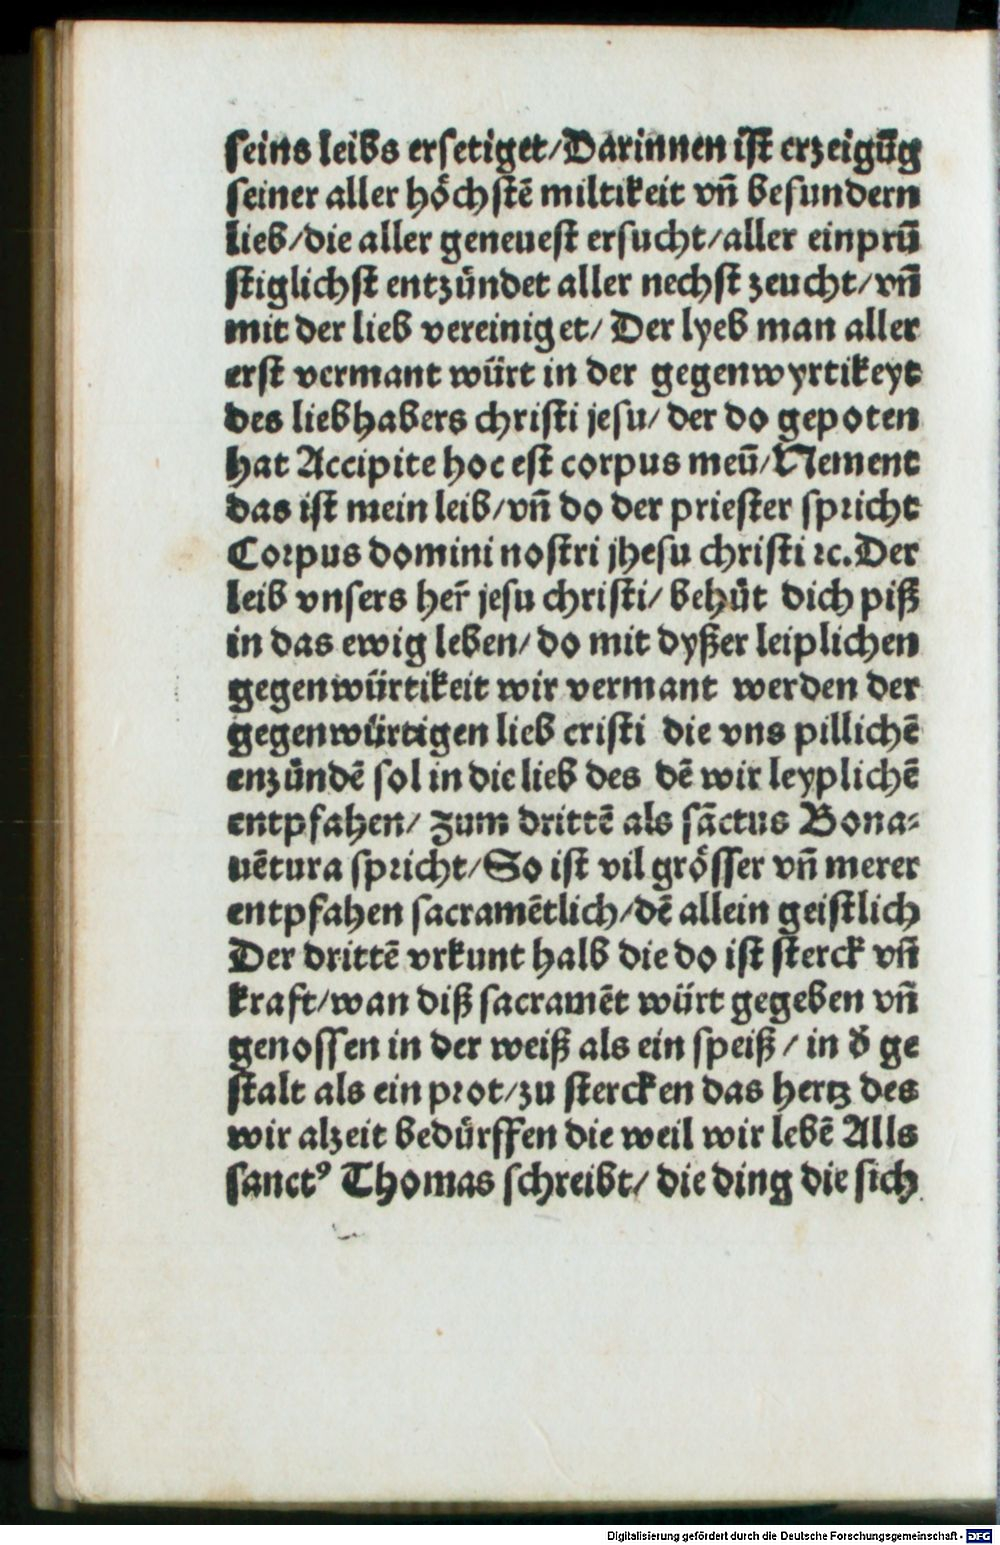 seins leibs ersetiget/Darinnen ist erzeigūg
seiner aller höchstē miltikeit vn̄ besundern
lieb/die aller geneuest ersucht/aller einprū
stiglichst entzündet aller nechst zeucht/vn̄
mit der lieb vereiniget/ Der lyeb man aller
erst vermant würt in der gegenwyrtikeyt
des liebhabers christi jesu/ der do gepoten
hat Accipite hoc est corpus meū/Nement
das ist mein leib/vn̄ do der priester spricht
Corpus domini nostri jhesu christi ⁊c.Der
leib vnsers her̄ jesu christi/ behüt dich piß
in das ewig leben/ do mit dyßer leiplichen
gegenwürtikeit wir vermant werden der
gegenwürtigen lieb cristi die vns pillichē
enzündē sol in die lieb des dē wir leyplichē
entpfahen/ zum drittē als sāctus Bona⸗
uētura spricht/So ist vil grösser vn̄ merer
entpfahen sacramētlich/dē allein geistlich
Der drittē vrkunt halb die do ist sterck vn̄
kraft/wan diß sacramēt würt gegeben vn̄
genossen in der weiß als ein speiß / in d̄ ge
stalt als ein prot/zu stercken das hertz des
wir alzeit bedürffen die weil wir lebē Alls
sanctꝰ Thomas schreibt/ die ding die sich
Digitalisierung gefördert durch die Deutsche Forschungsgemeinschaft - DFG